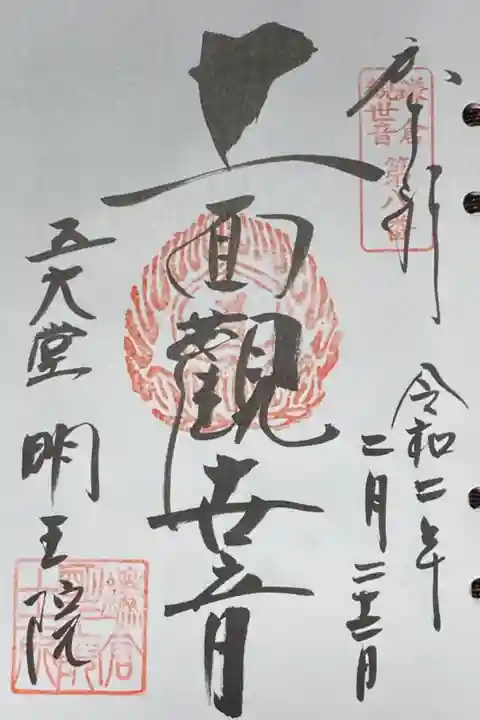 鎌倉
観世音 第八番
令和二年
二月二十二日
十一面觀世音
五大堂 明王院